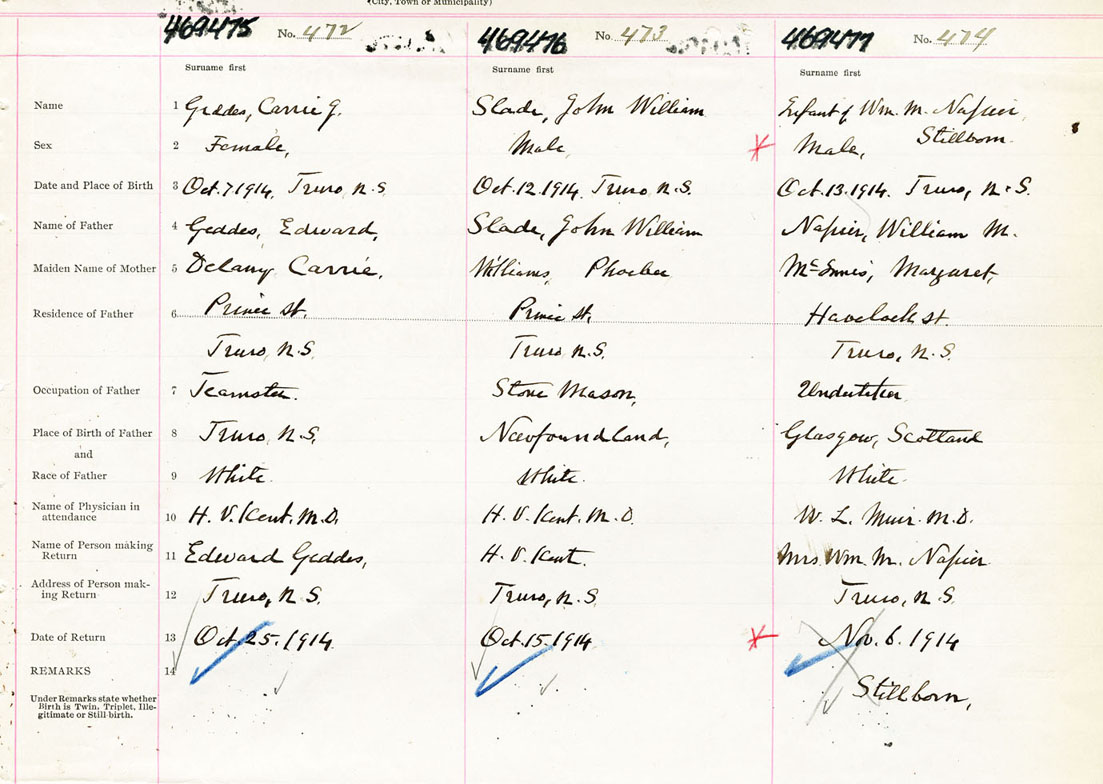 (City, Town or Municipality)
469475 No. 472 469476 No. 473 469477 No. 474
Surname first Surname first Surname first
Name 1 Geddes, Carrie G. Slade, John William Infant of Wm. M. Napier
Stillborn
Sex 2 Female, Male, Male,
Date and Place of Birth 3 Oct. 7 1914, Truro, N.S. Oct. 12 1914, Truro, N.S. Oct. 13. 1914. Truro, N.S.
Name of Father 4 Geddes, Edward, Slade, John William Napier, William M.
Maiden Name of Mother 5 Delany Carrie, Williams, Phoebe McInnis, Margaret,
Residence of Father 6 Prince St, Prince St, Havelock St.
Truro, N.S. Truro, N.S. Truro, N.S.
Occupation of Father 7 Teamster. Stone Mason, Undertaker
Place of Birth of Father 8 Truro, N.S. Newfoundland, Glasgow, Scotland
and
Race of Father 9 White. White. White.
Name of Physician in
attendance 10 H. V. Kent. M.D. H. V. Kent. M.D. W. L. Muir. M.D.
Name of Person making
Return 11 Edward Geddes, H. V. Kent. Mrs. Wm. M. Napier
Address of Person mak-
ing Return 12 Truro, N.S. Truro, N.S. Truro, N.S.
Date of Return 13 Oct 25. 1914 Oct. 15 1914 Nov. 6. 1914
REMARKS 14
Stillborn,
Under Remarks state whether
Birth is Twin, Triplet, Ille-
gitimate or Still-birth.